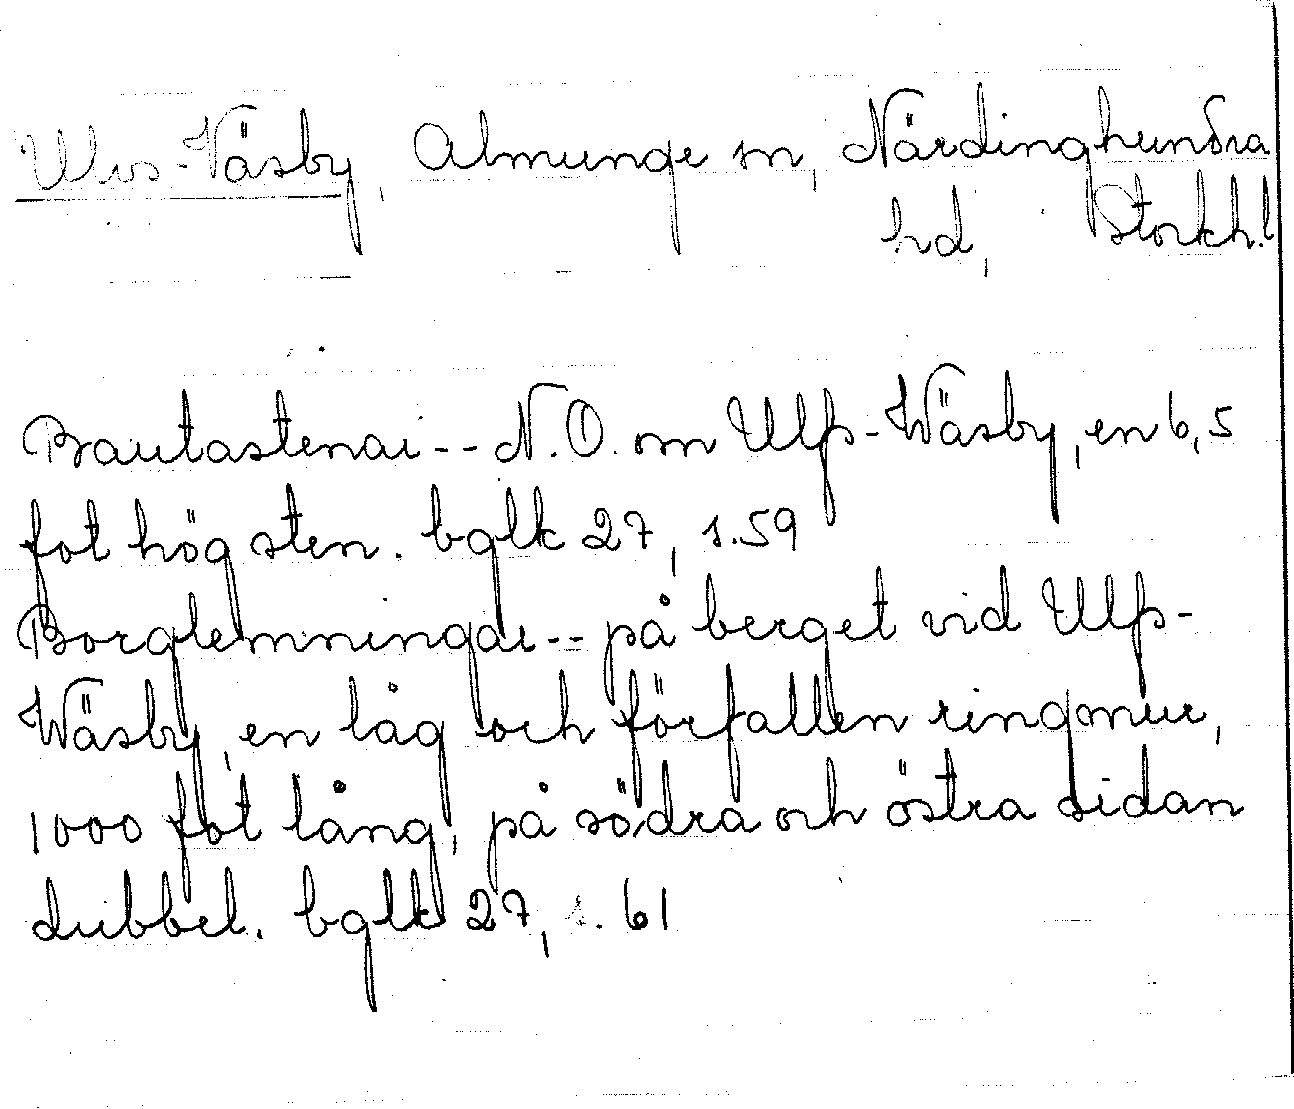 Ulvs-Väsby, Almunge sn, Närdinghundra
hd, Stockh.l
Bautastenar -- N.O. om Ulfs-Wäsby, en 6,5
fot hög sten. bglk 27, s.59
Borglemningar -- på berget vid Ulfs-
Wäsby, en låg och förfallen ringmur,
1000 fot lång, på södra och östra sidan
dubbel. bglk 27, s. 61